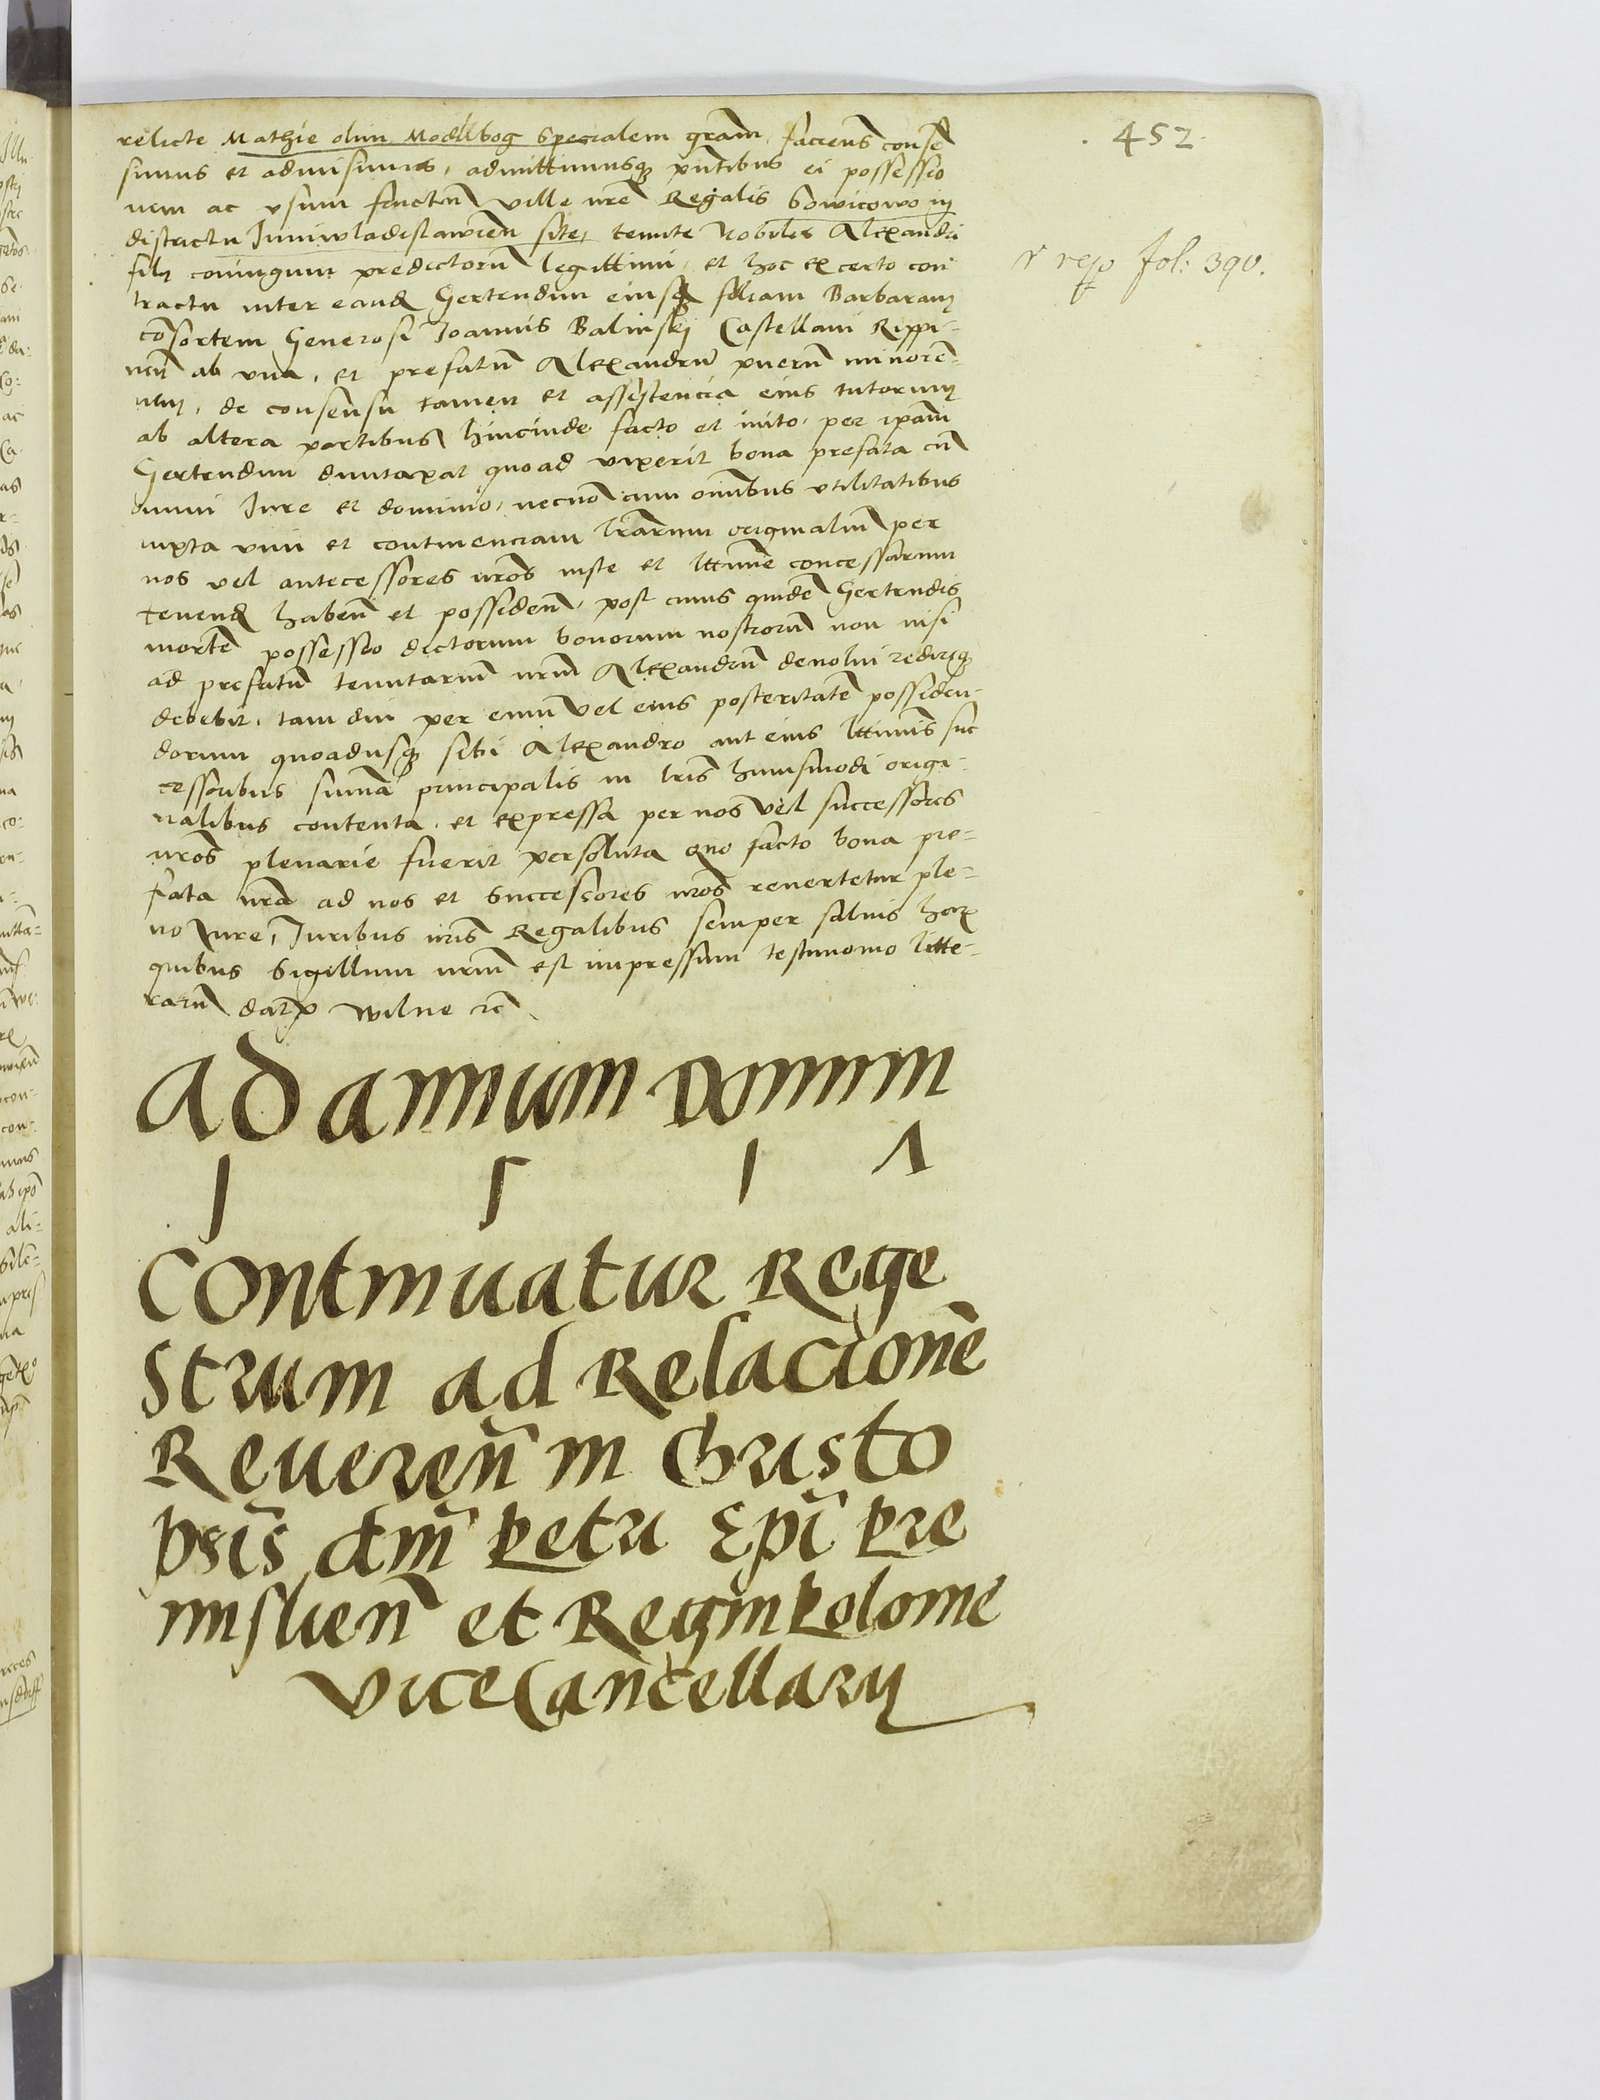 . 452.
relicte Mathie olim Modlibog specialem grãm faciens consẽ
simus et admisimus, admittimusqꝫ pñtibus ei possessio
nem ac usum fructũ ville nrẽ Regalis Sowicowo in
districtu Juniwladislawieñ site, tenute Nobilis Alexandri
filij coniugum predictorũ legittimi, et hoc ex certo con
tractu inter eand Gertrudim eiusqꝫ filiam Barbaram
cõsortem Generosi Joannis Balinskj Castellani Rippi-
neñ ab una, et prefatũ Alexandrũ puerũ minorẽ-
nem, de consensu tamen et assistencia eius tutorum
ab altera partibus hincinde facto et inito, per ipam̃
Gertrudim duntaxat quoad vixerit bona prefata cũ
omni Jure et dominio, necnõ cum omnibus utilitatibus
iuxta vim et continenciam lrarum originaliũ per
nos vel antecessores nros iuste et lttime concessarum
tenend habeñ et possideñ, post cuius quidẽ Gertrudis
mortẽ possessio dictorum bonorum nostrorũ non nisi
ad prefatũ tenutariũ nrm̃ Alexandrũ devolvi redireqꝫ
debebit, tam diu per eum vel eius posteritatẽ possiden-
dorum quoadusqꝫ sibi Alexandro aut eius lttimis suc
cessoribus summa principalis in lris huiusmodi origi-
nalibus contenta, et expressa per nos vel successores
nros plenarie fuerit persoluta quo facto bona pre-
fata nra ad nos et successores nros revertetur ple-
no Jure, Juribus nris Regalibus semper salvis harꝫ
quibus Sigillum nrm̃ est impressum testimonio litte-
rarũ datꝫ Wilne ꝛc̃
r regr fol: 390.
Ad annum domini
1 5 1 7
Continuatur Rege
strum ad Relacionẽ
Reveren̄ in Christo
pr̃is dm̃ Petri Ep̃i Pre
mislien̄ et Regni Polonie
ViceCancellarij